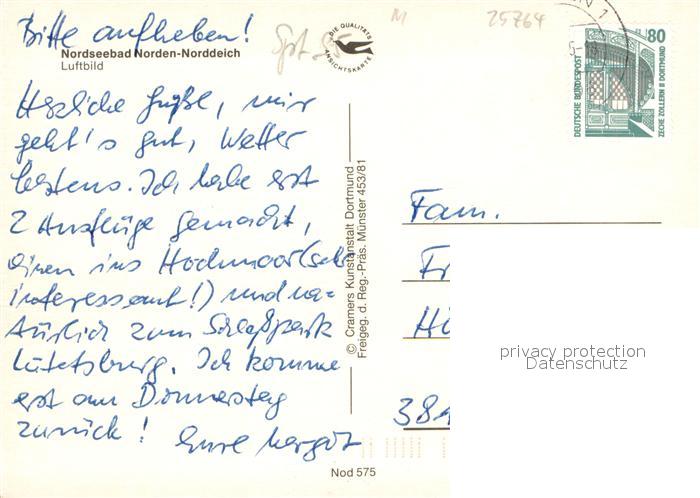 Bitte aufheben!
Nordseebad Norden-Norddeich
Luftbild
Herzliche Grüße, mir
geht's gut, Wetter
bestens. Ich habe erst
2 Ausflüge gemacht,
einen ins Hochmoor (sehr
interessant!) und na-
türlich zum Schloßpark
Lütetsburg. Ich komme
erst am Donnerstag
zurück! Eure Margot
DIE QUALITÄTS
ANSICHTSKARTE
M
25764
© Cramers Kunstanstalt Dortmund
Freigeg. d. Reg.-Präs. Münster 453/81
Nod 575
80
DEUTSCHE BUNDESPOST
ZECHE ZOLLERN II DORTMUND
Fam.
Fr
Hi
381
privacy protection
Datenschutz